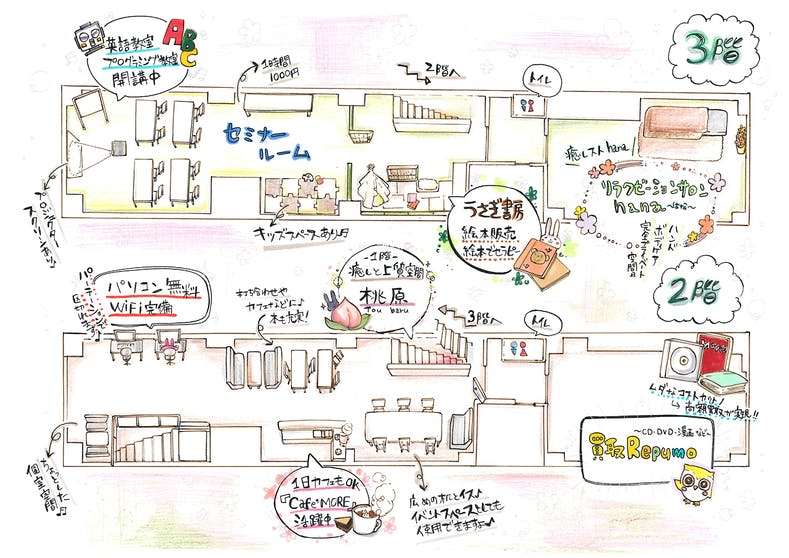 3階
英語教室
プログラミング教室
開講中
ABC
1時間
1000円
2階へ
トイレ
セミナー
ルーム
癒しスト hana
リラクゼーションサロン
hana
~はな~
ハンド
ボディケア
完全プライベート
空間
プロジェクター
スクリーンあり♪
キッズスペースあり♪
うさぎ書房
絵本販売
絵本でセラピー
2階
パーテーションで
区切れます♪
パソコン無料
WiFi完備
打ち合わせや
カフェなどに♪
本も充実!
-1階-
癒しと上質空間
桃原
Tou baru
3階へ
トイレ
ムダなコストカット!
高額買取が実現!!
~CD・DVD・漫画など~
買取Repumo
ちょっとした
個室空間♪
1日カフェもOK
『Cafe MORE』
活躍中
広めの机とイス♪
イベントスペースとしても
使用できますよ~